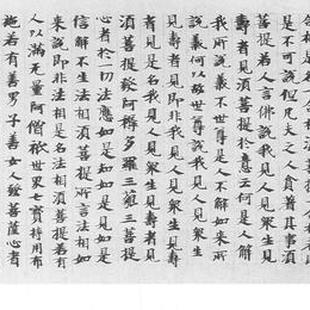 是不可說但凡夫之人貪著其事須
菩提若人言佛說我見人見衆生見
壽者見須菩提於意云何是人解
我所說義不世尊是人不解如來所
說義何以故世尊說我見人見衆生
見壽者見即非我見人見衆生見壽
者見是名我見人見衆生見壽者見
須菩提發阿耨多羅三藐三菩提
心者於一切法應如是知如是見如是
信解不生法相須菩提所言法相如
來說即非法相是名法相須菩提若有
人以滿无量阿僧祇世界七寶持用布
施若有善男子善女人發菩薩心者